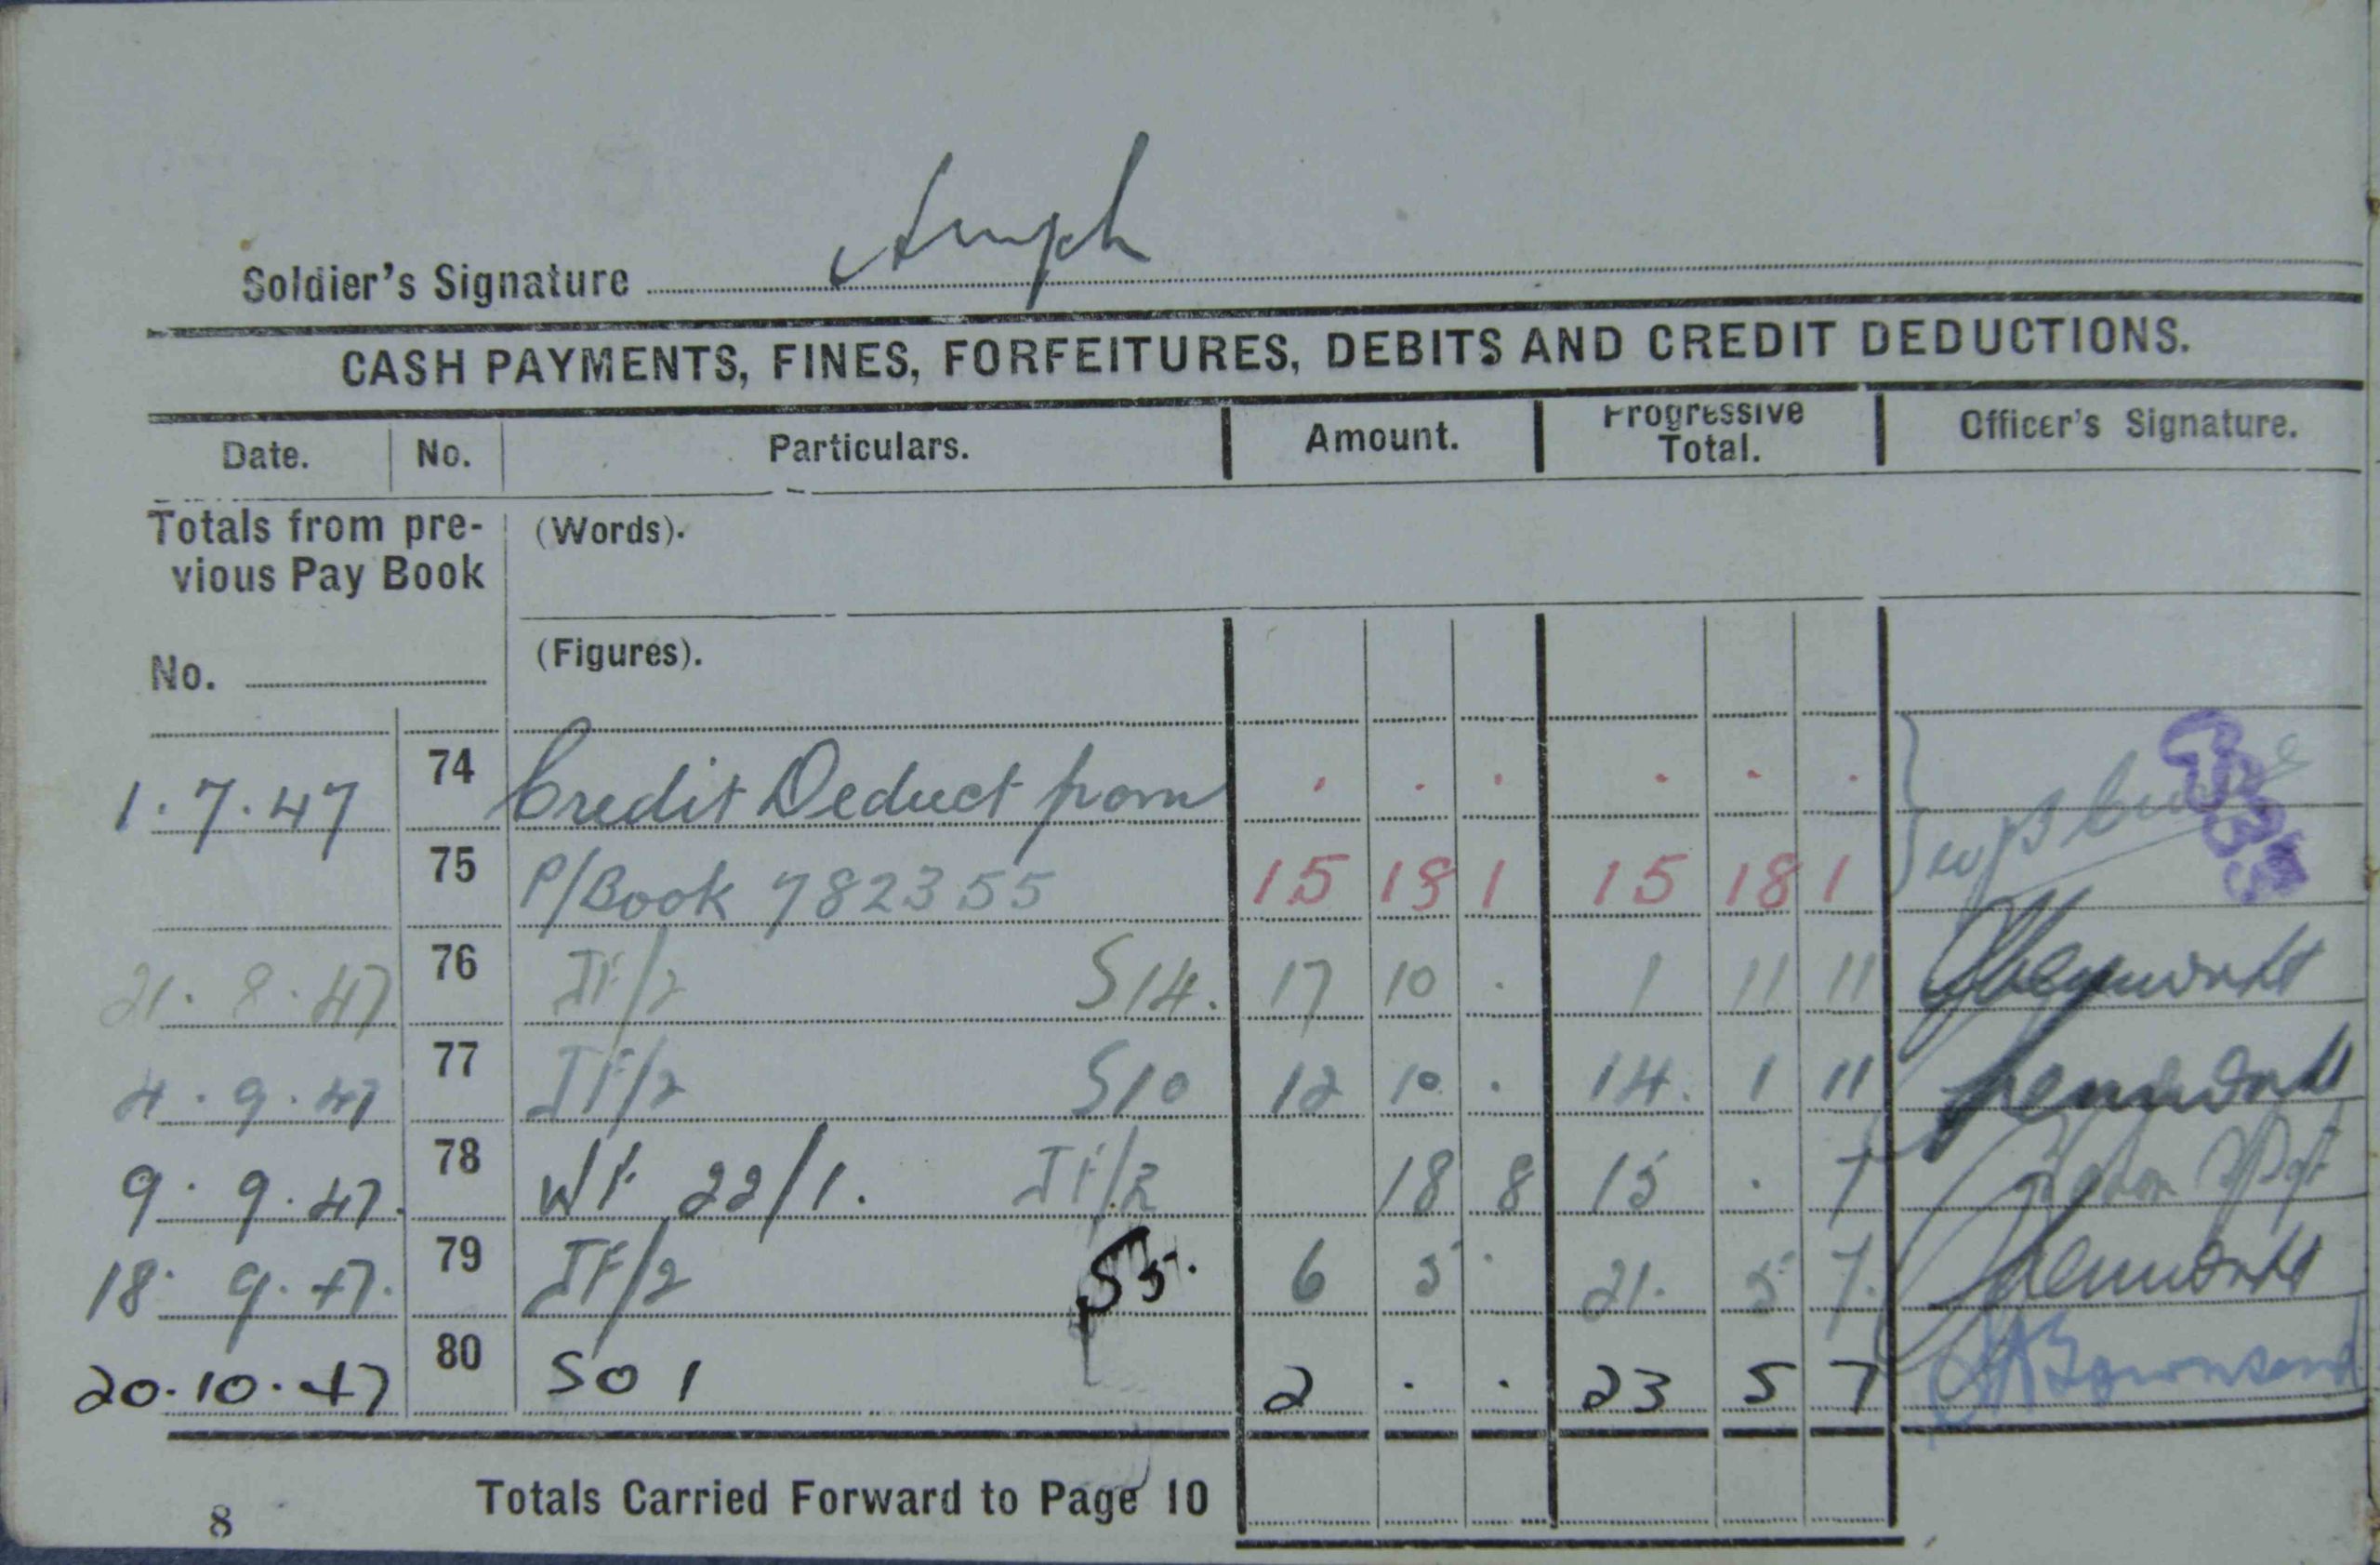 Soldier's Signature
CASH PAYMENTS, FINES, FORFEITURES, DEBITS AND CREDIT DEDUCTIONS.
Date. No. Particulars. Amount. Progressive Total. Officer's Signature.
Totals from pre-
vious Pay Book
(Words).
No.
(Figures).
1.7.47 74 Credit Deduct from . . . . . .
75 P/Book 782355 15 18 1 15 18 1
21.8.47 76 JF/2 S14. 17 10 . 1 11 11
4.9.47 77 JF/2 S10 12 10 . 14. 1 11
9.9.47. 78 WF 22/1. JF/2 18 8 15 . 7
18.9.47. 79 JF/2 S5. 6 5 . 21. 5 7.
20.10.47 80 SO 1 2 . . 23 5 7 Townsend
Totals Carried Forward to Page 10
8